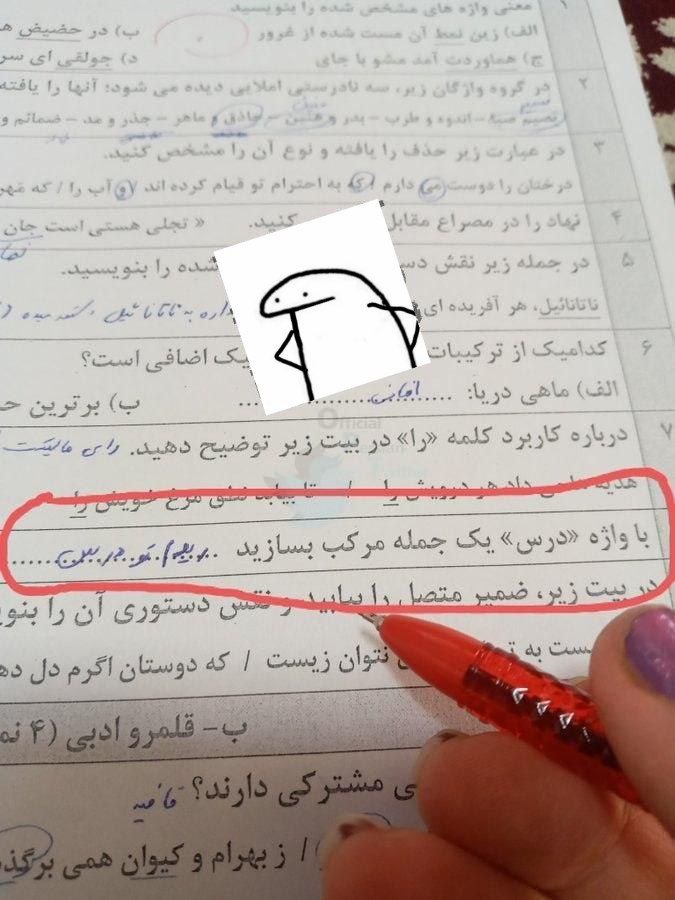 ۱ معنی واژه های مشخص شده را بنویسید
الف) زین نمط آن مست شده از غرور ب) در حضیض
ج) هماوردت آمد مشو باز جای د) جولقی ای سر
۲ در گروه واژگان زیر، سه نادرستی املایی دیده می شود؛ آنها را یافته
اندوه و طرب - بدر و ماهر - جذر و مد - ضمائم و
۳ در عبارت زیر حذف را یافته و نوع آن را مشخص کنید.
درختان را دوست می دارم که به احترام تو قیام کرده اند و آب را / که مهر
۴ نهاد را در مصراع مقابل کنید. « تجلی هستی است جان
۵ در جمله زیر نقش دس شده را بنویسید.
ناتانائیل، هر آفریده ای
۶ کدامیک از ترکیبات یک اضافی است؟
الف) ماهی دریا: ب) برترین
Official
۷ درباره کاربرد کلمه «را» در بیت زیر توضیح دهید.
هدیه داد هر درویش را / تا بیابد نطق مرغ خویش را
با واژه «درس» یک جمله مرکب بسازید
در بیت زیر، ضمیر متصل را بیابید و نقش دستوری آن را بنوی
نتوان زیست / که دوستان اگرم دل
ب- قلمرو ادبی (۴ نم
ی مشترکی دارند؟ قافیه
/ ز بهرام و کیوان همی برگذ